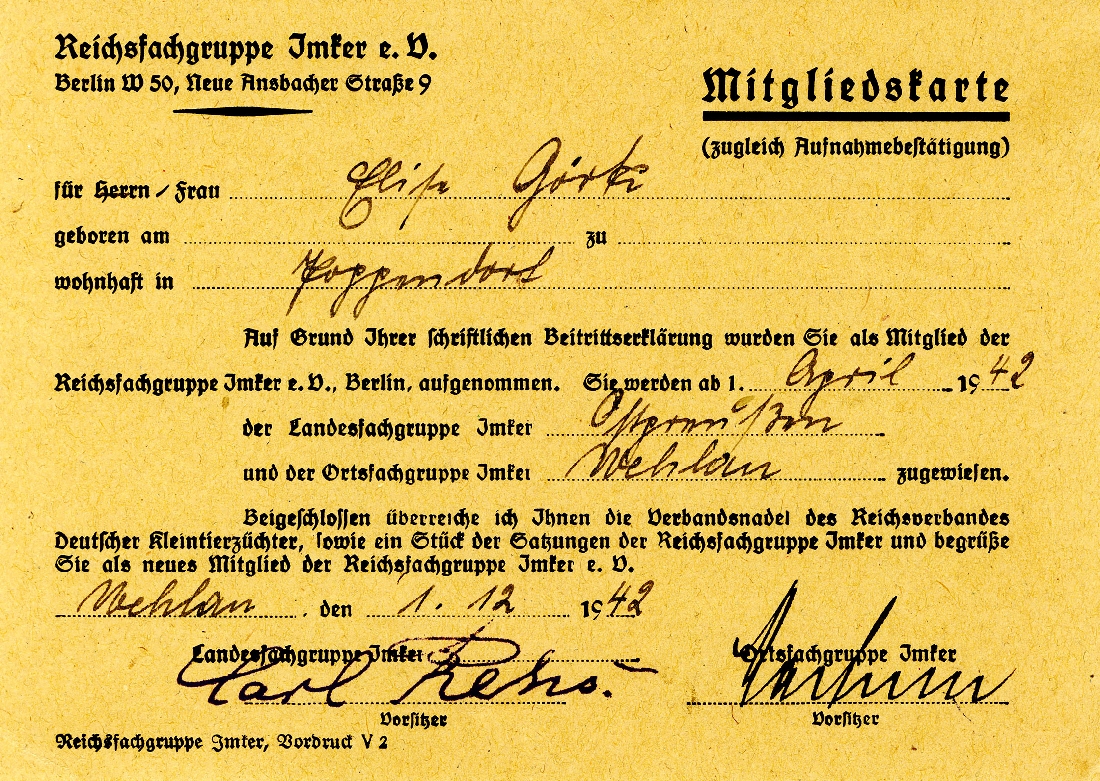 Reichsfachgruppe Imker e. V.
Berlin W 50, Neue Ansbacher Straße 9
Mitgliedskarte
(zugleich Aufnahmebestätigung)
für Herrn / Frau Elise Görke
geboren am zu
wohnhaft in Poppendorf
Auf Grund Ihrer schriftlichen Beitrittserklärung wurden Sie als Mitglied der
Reichsfachgruppe Imker e. V., Berlin, aufgenommen. Sie werden ab 1. April 1942
der Landesfachgruppe Imker Ostpreußen
und der Ortsfachgruppe Imker Wehlau zugewiesen.
Beigeschlossen überreiche ich Ihnen die Verbandsnadel des Reichsverbandes
Deutscher Kleintierzüchter, sowie ein Stück der Satzungen der Reichsfachgruppe Imker und begrüße
Sie als neues Mitglied der Reichsfachgruppe Imker e. V.
Wehlau, den 1. 12 1942
Landesfachgruppe Imker Ortsfachgruppe Imker
Carl
Vorsitzer Vorsitzer
Reichsfachgruppe Imker, Vordruck V 2